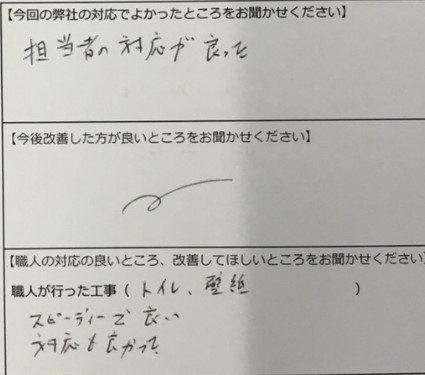 【今回の弊社の対応でよかったところをお聞かせください】
担当者の対応が良った
【今後改善した方が良いところをお聞かせください】
【職人の対応の良いところ、改善してほしいところをお聞かせください】
職人が行った工事（トイレ、壁紙）
スピーディーで良い
対応も良かった